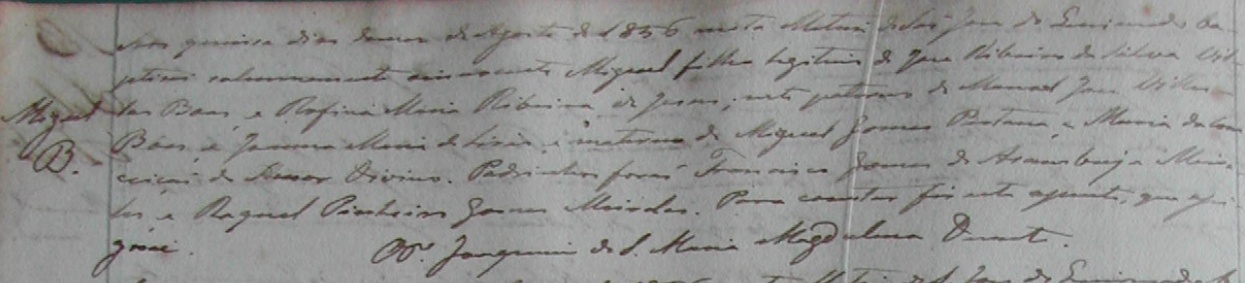 Aos quinze dias do mez de Agosto de 1856 nesta Matriz de São José de Queimado ba-
ptizei solemnemente ao innocente Miguel filho legitimo de José Ribeiro da Silva Vil-
Miguel las Boas, e Rofina Maria Ribeira de Jesus; neto paterno de Manoel José Villas
B. Boas, e Joanna Maria de, e materno de Miguel Gomes Pestana, e Maria da Con-
ceição do Amor Divino. Padrinhos forão Francisco Gomes de e Meire-
les e Raquel Pinheiro Gomes. Para constar fiz este assento, que assi-
gnei. Vigr. Joaquim de S. Maria Magdalena Duarte.